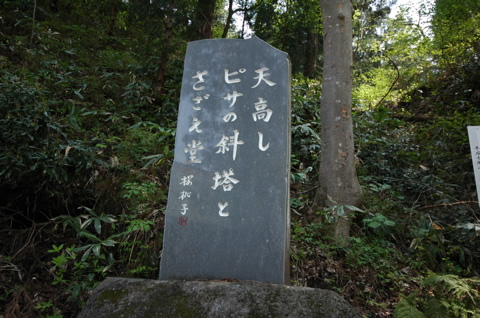 天高し
ピサの斜塔と
さざえ堂
桜桃子